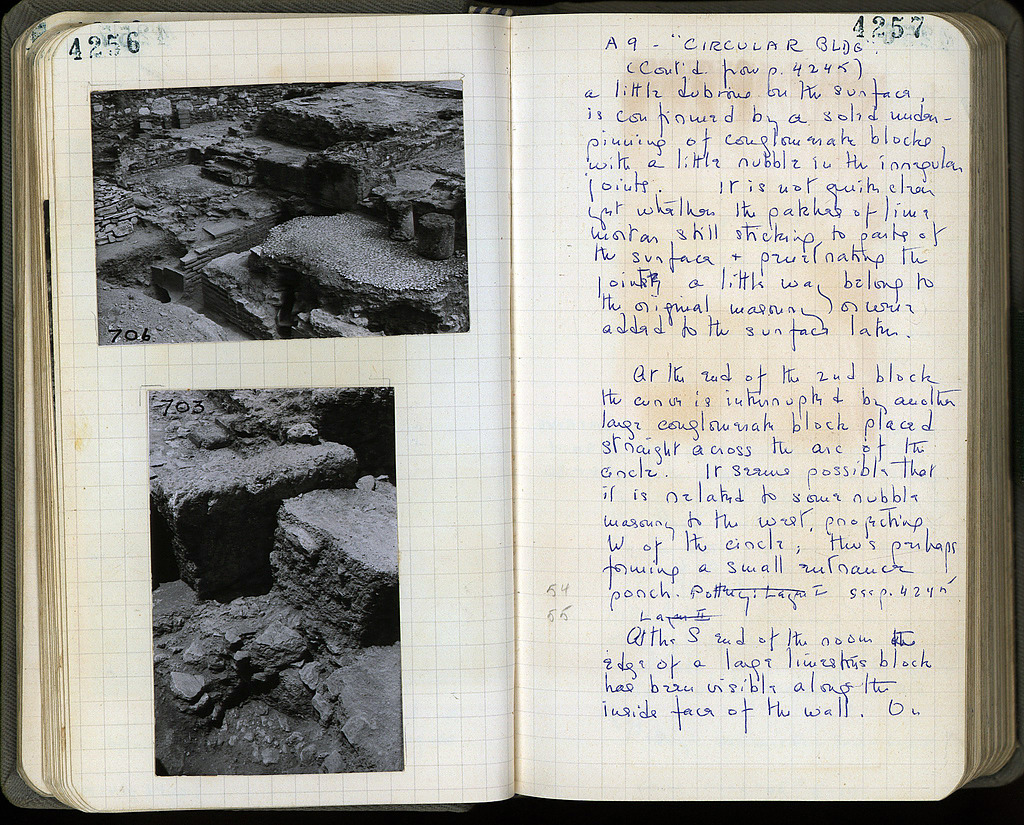 4256
706
703
4257
A 9 - "CIRCULAR BLDG".
(Cont'd. from p. 4245)
a little dubious on the surface,
is confirmed by a solid under-
pinning of conglomerate blocks
with a little rubble in the irregular
joints. It is not quite clear
yet whether the patches of lime
mortar still sticking to parts of
the surface + penetrating the
joints a little way belong to
the original masonry or were
added to the surface later.
At the end of the 2nd block
the curve is interrupted by another
large conglomerate block placed
straight across the arc of the
circle. It seems possible that
it is related to some rubble
masonry to the west, projecting
W of the circle, thus perhaps
forming a small entrance
54
porch. Pottery: Layer I see p. 4245
55
Layer II
At the S end of the room the
edge of a large limestone block
has been visible along the
inside face of the wall. On